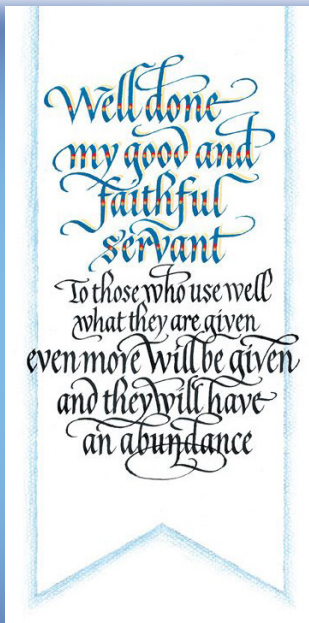 Well done
my good and
faithful
servant
To those who use well
what they are given
even more will be given
and they will have
an abundance